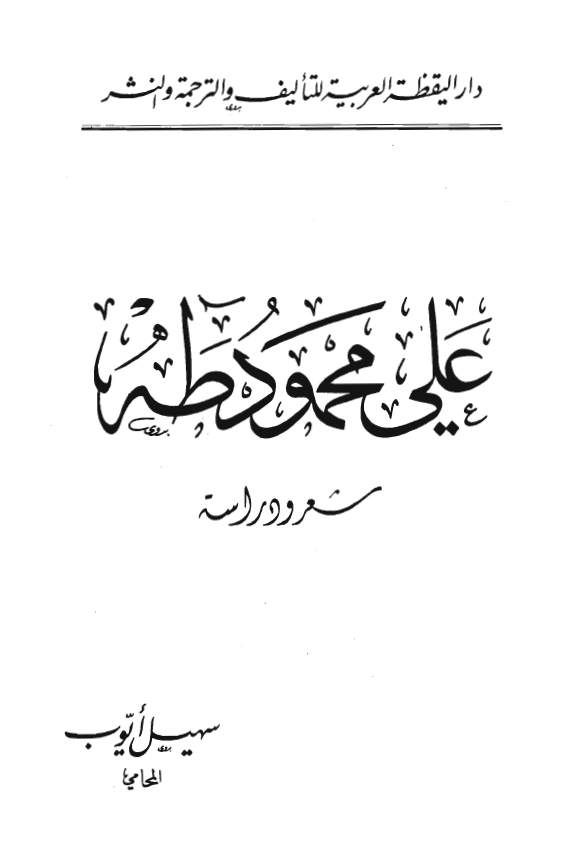 دار اليقظة العربية للتأليف والترجمة والنشر
علي محمود طه
شعر ودراسة
سهيل أيوب
المحامي